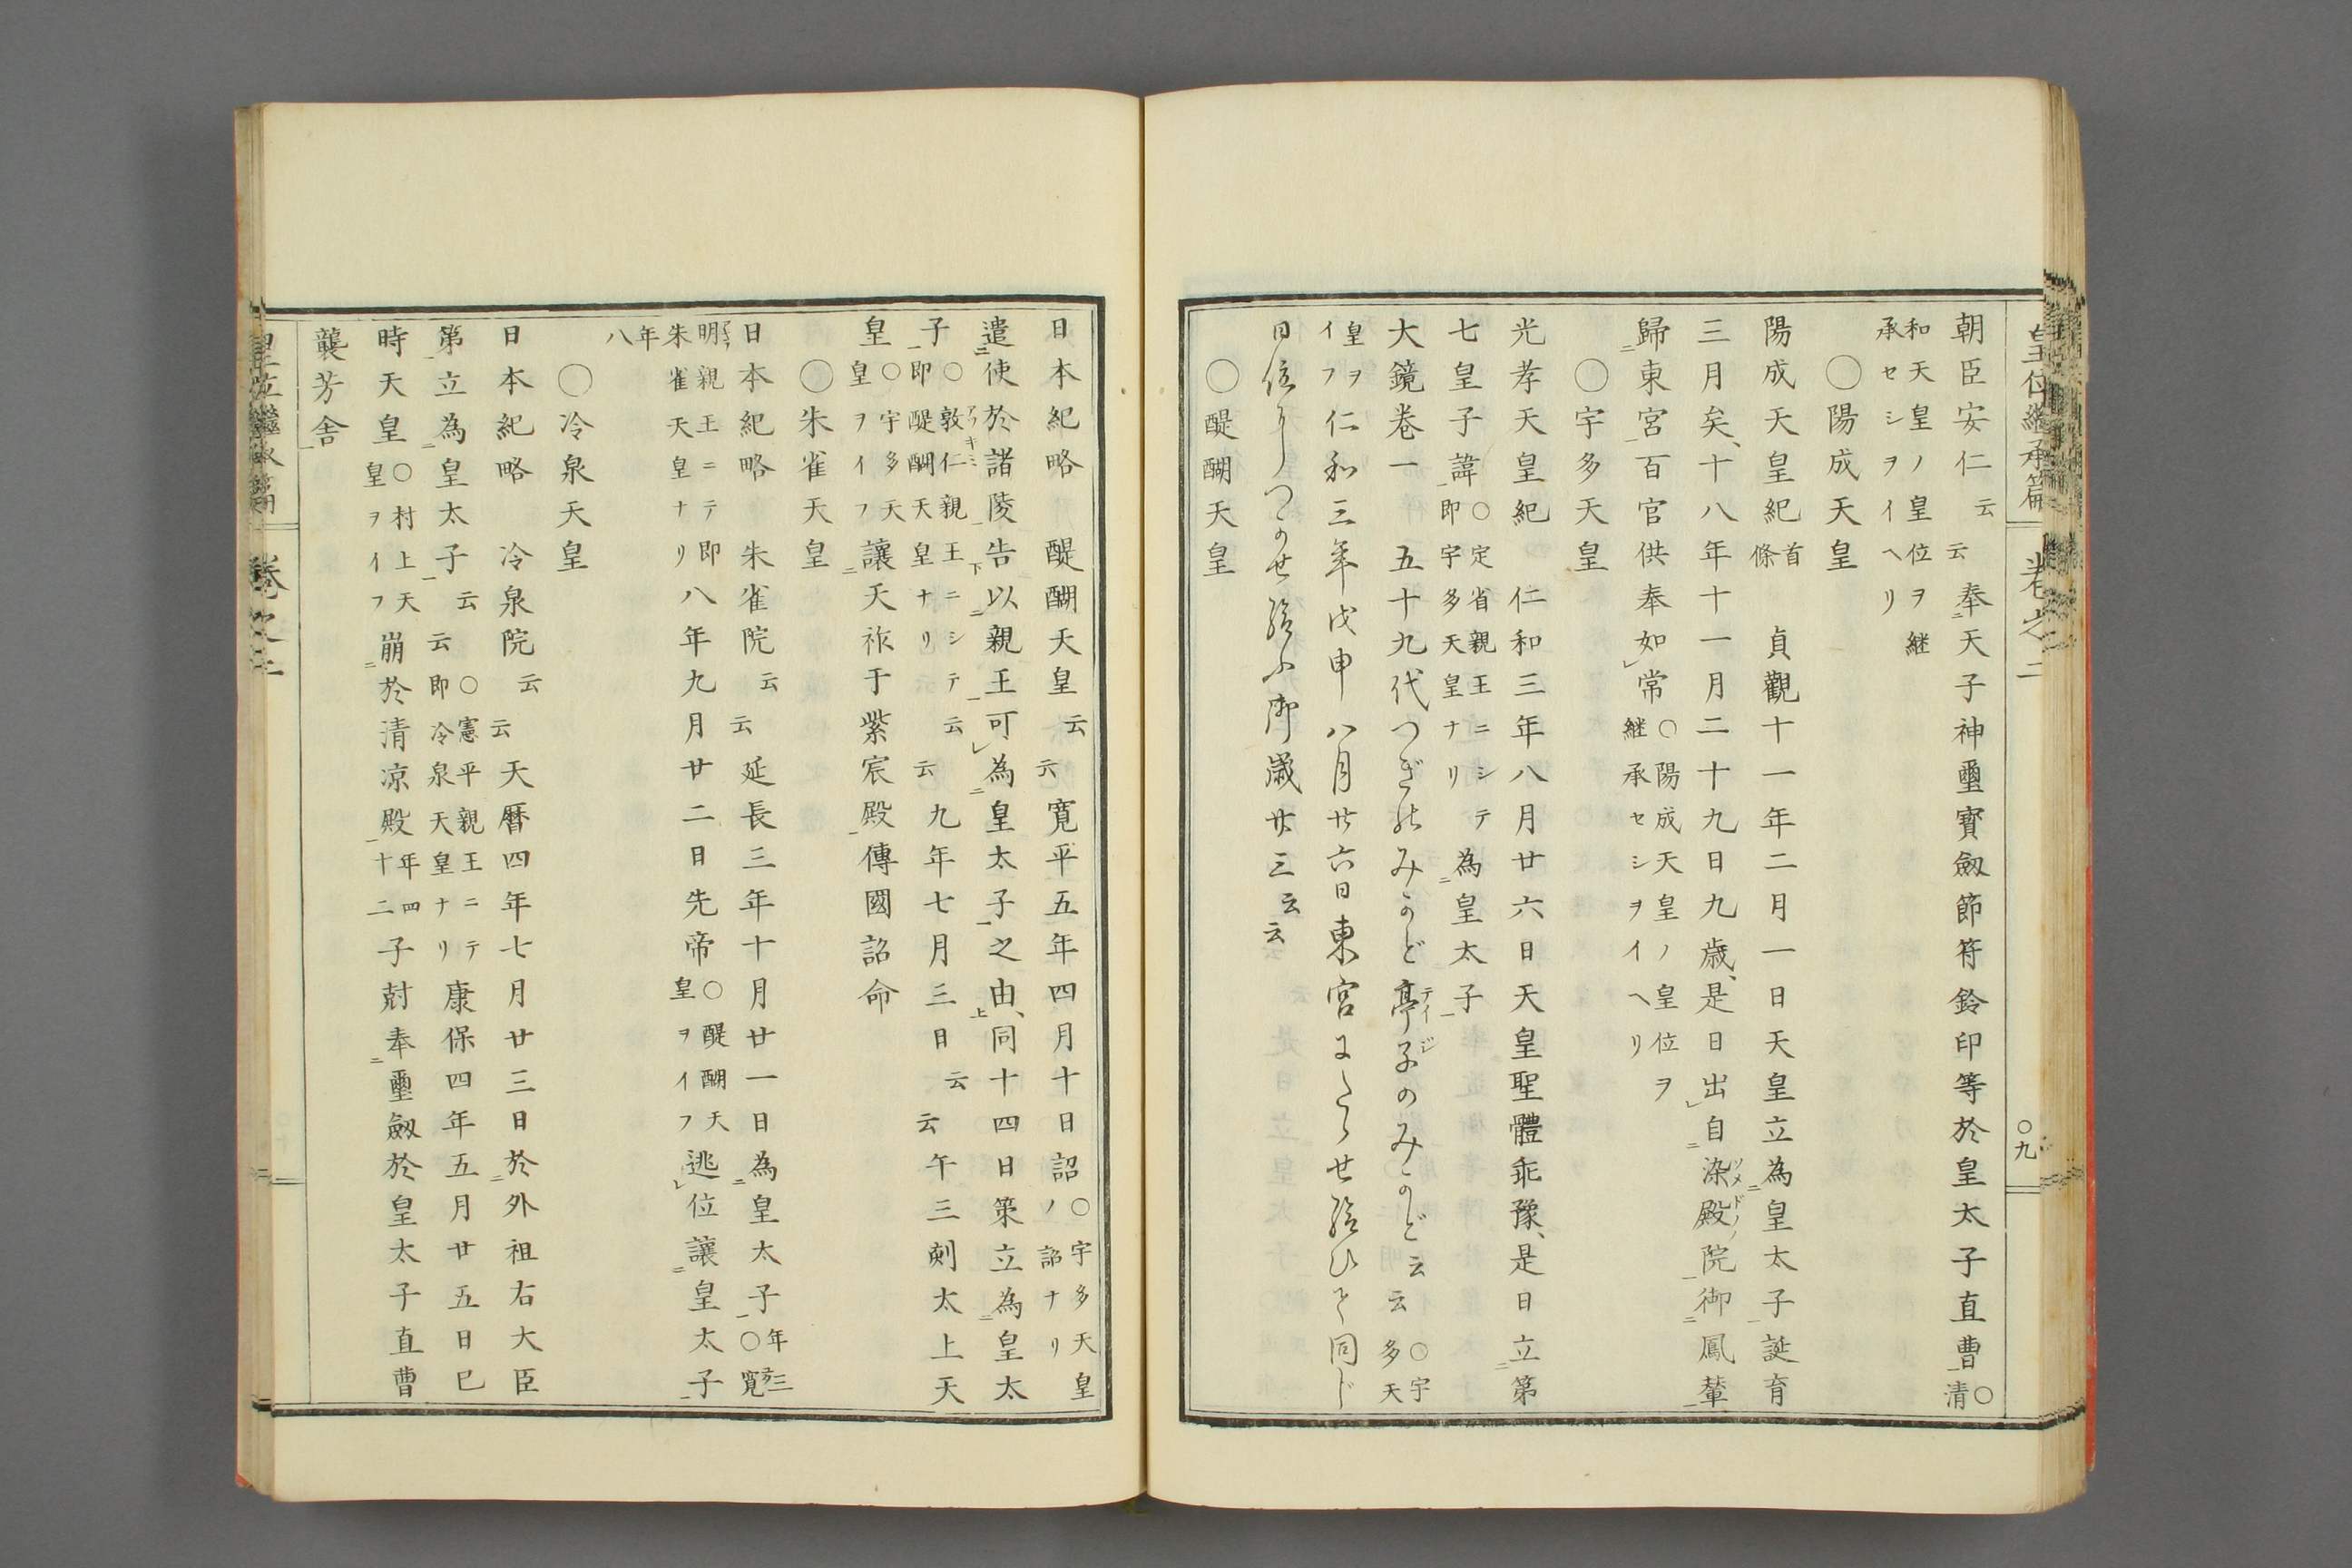 皇位継承篇 卷之二 ○九
朝臣安仁云云奉天子神璽寶劔節符鈴印等於皇太子直曹○清
和天皇ノ皇位ヲ継
承セシヲイヘリ
○陽成天皇
陽成天皇紀首條 貞觀十一年二月一日天皇立為皇太子誕育
三月矣、十八年十一月二十九日九歳、是日出自染殿院御鳳輦
歸東宮百官供奉如常○陽成天皇ノ皇位ヲ継承セシヲイヘリ
○宇多天皇
光孝天皇紀 仁和三年八月廿六日天皇聖體乖豫、是日立第
七皇子諱○定省親王ニシテ即宇多天皇ナリ為皇太子
大鏡卷一 五十九代つぎのみかど亭子のみかど云云○宇多天
皇ヲイフ仁和三年戊申八月廿六日東宮にたゝせ給ひて同じ
日位につかせ給ふ御歳廿三云云
○醍醐天皇
日本紀略 醍醐天皇云云寛平五年四月十日詔○宇多天皇ノ詔ナリ
遣使於諸陵告以親王可為皇太子之由、同十四日策立為皇太
子○敦仁親王ニシテ即醍醐天皇ナリ云云九年七月三日云云午三剋太上天
皇○宇多天皇ヲイフ讓天祚于紫宸殿傳國詔命
○朱雀天皇
日本紀略 朱雀院云云延長三年十月廿一日為皇太子年三○寛
明親王ニテ即朱雀天皇ナリ八年九月廿二日先帝○醍醐天皇ヲイフ逃位讓皇太子
年八
○冷泉天皇
日本紀略 冷泉院云云天暦四年七月廿三日於外祖右大臣
第立為皇太子云云○憲平親王ニテ即冷泉天皇ナリ康保四年五月廿五日巳
時天皇○村上天皇ヲイフ崩於清凉殿年四十二子尅奉璽劔於皇太子直曹
襲芳舎